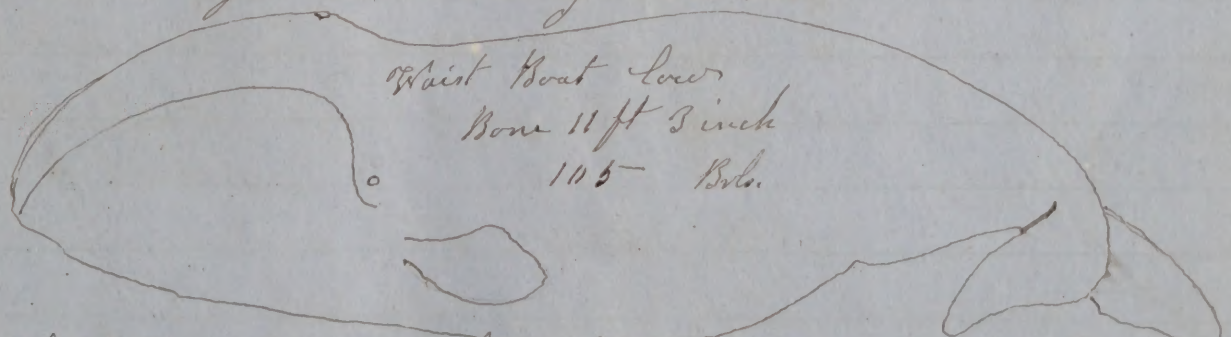 Waist Boat Cow
Bone 11 ft 3 inch
105 Brls.